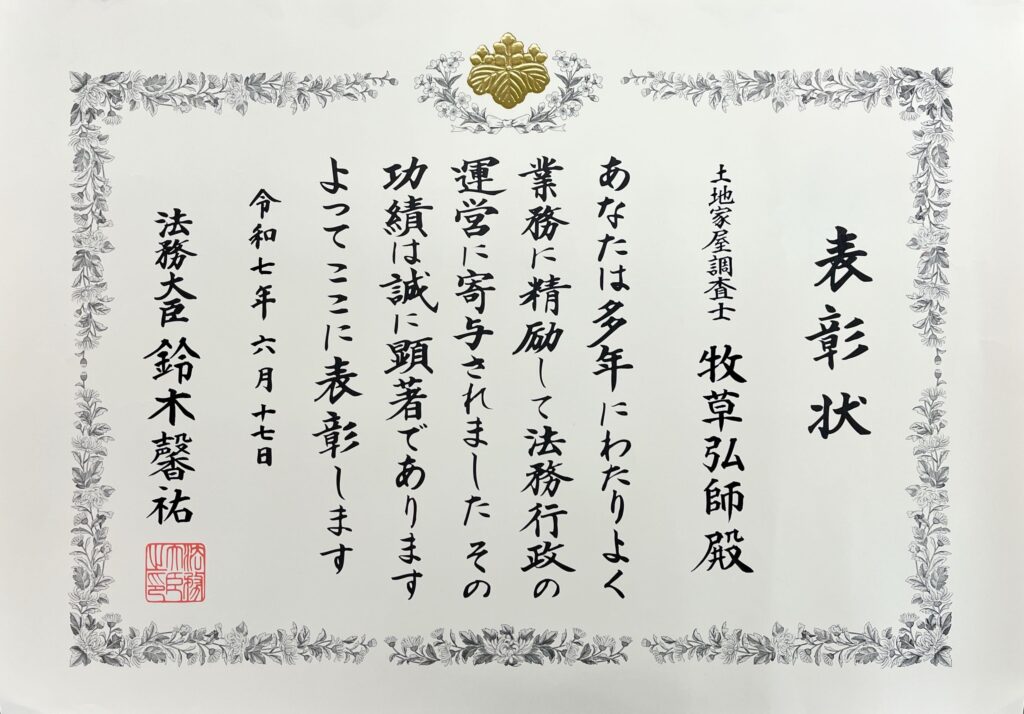 表彰状
土地家屋調査士 牧草弘師殿
あなたは多年にわたりよく
業務に精励して法務行政の
運営に寄与されました その
功績は誠に顕著であります
よってここに表彰します
令和七年 六月十七日
法務大臣 鈴木馨祐
法務大臣之印